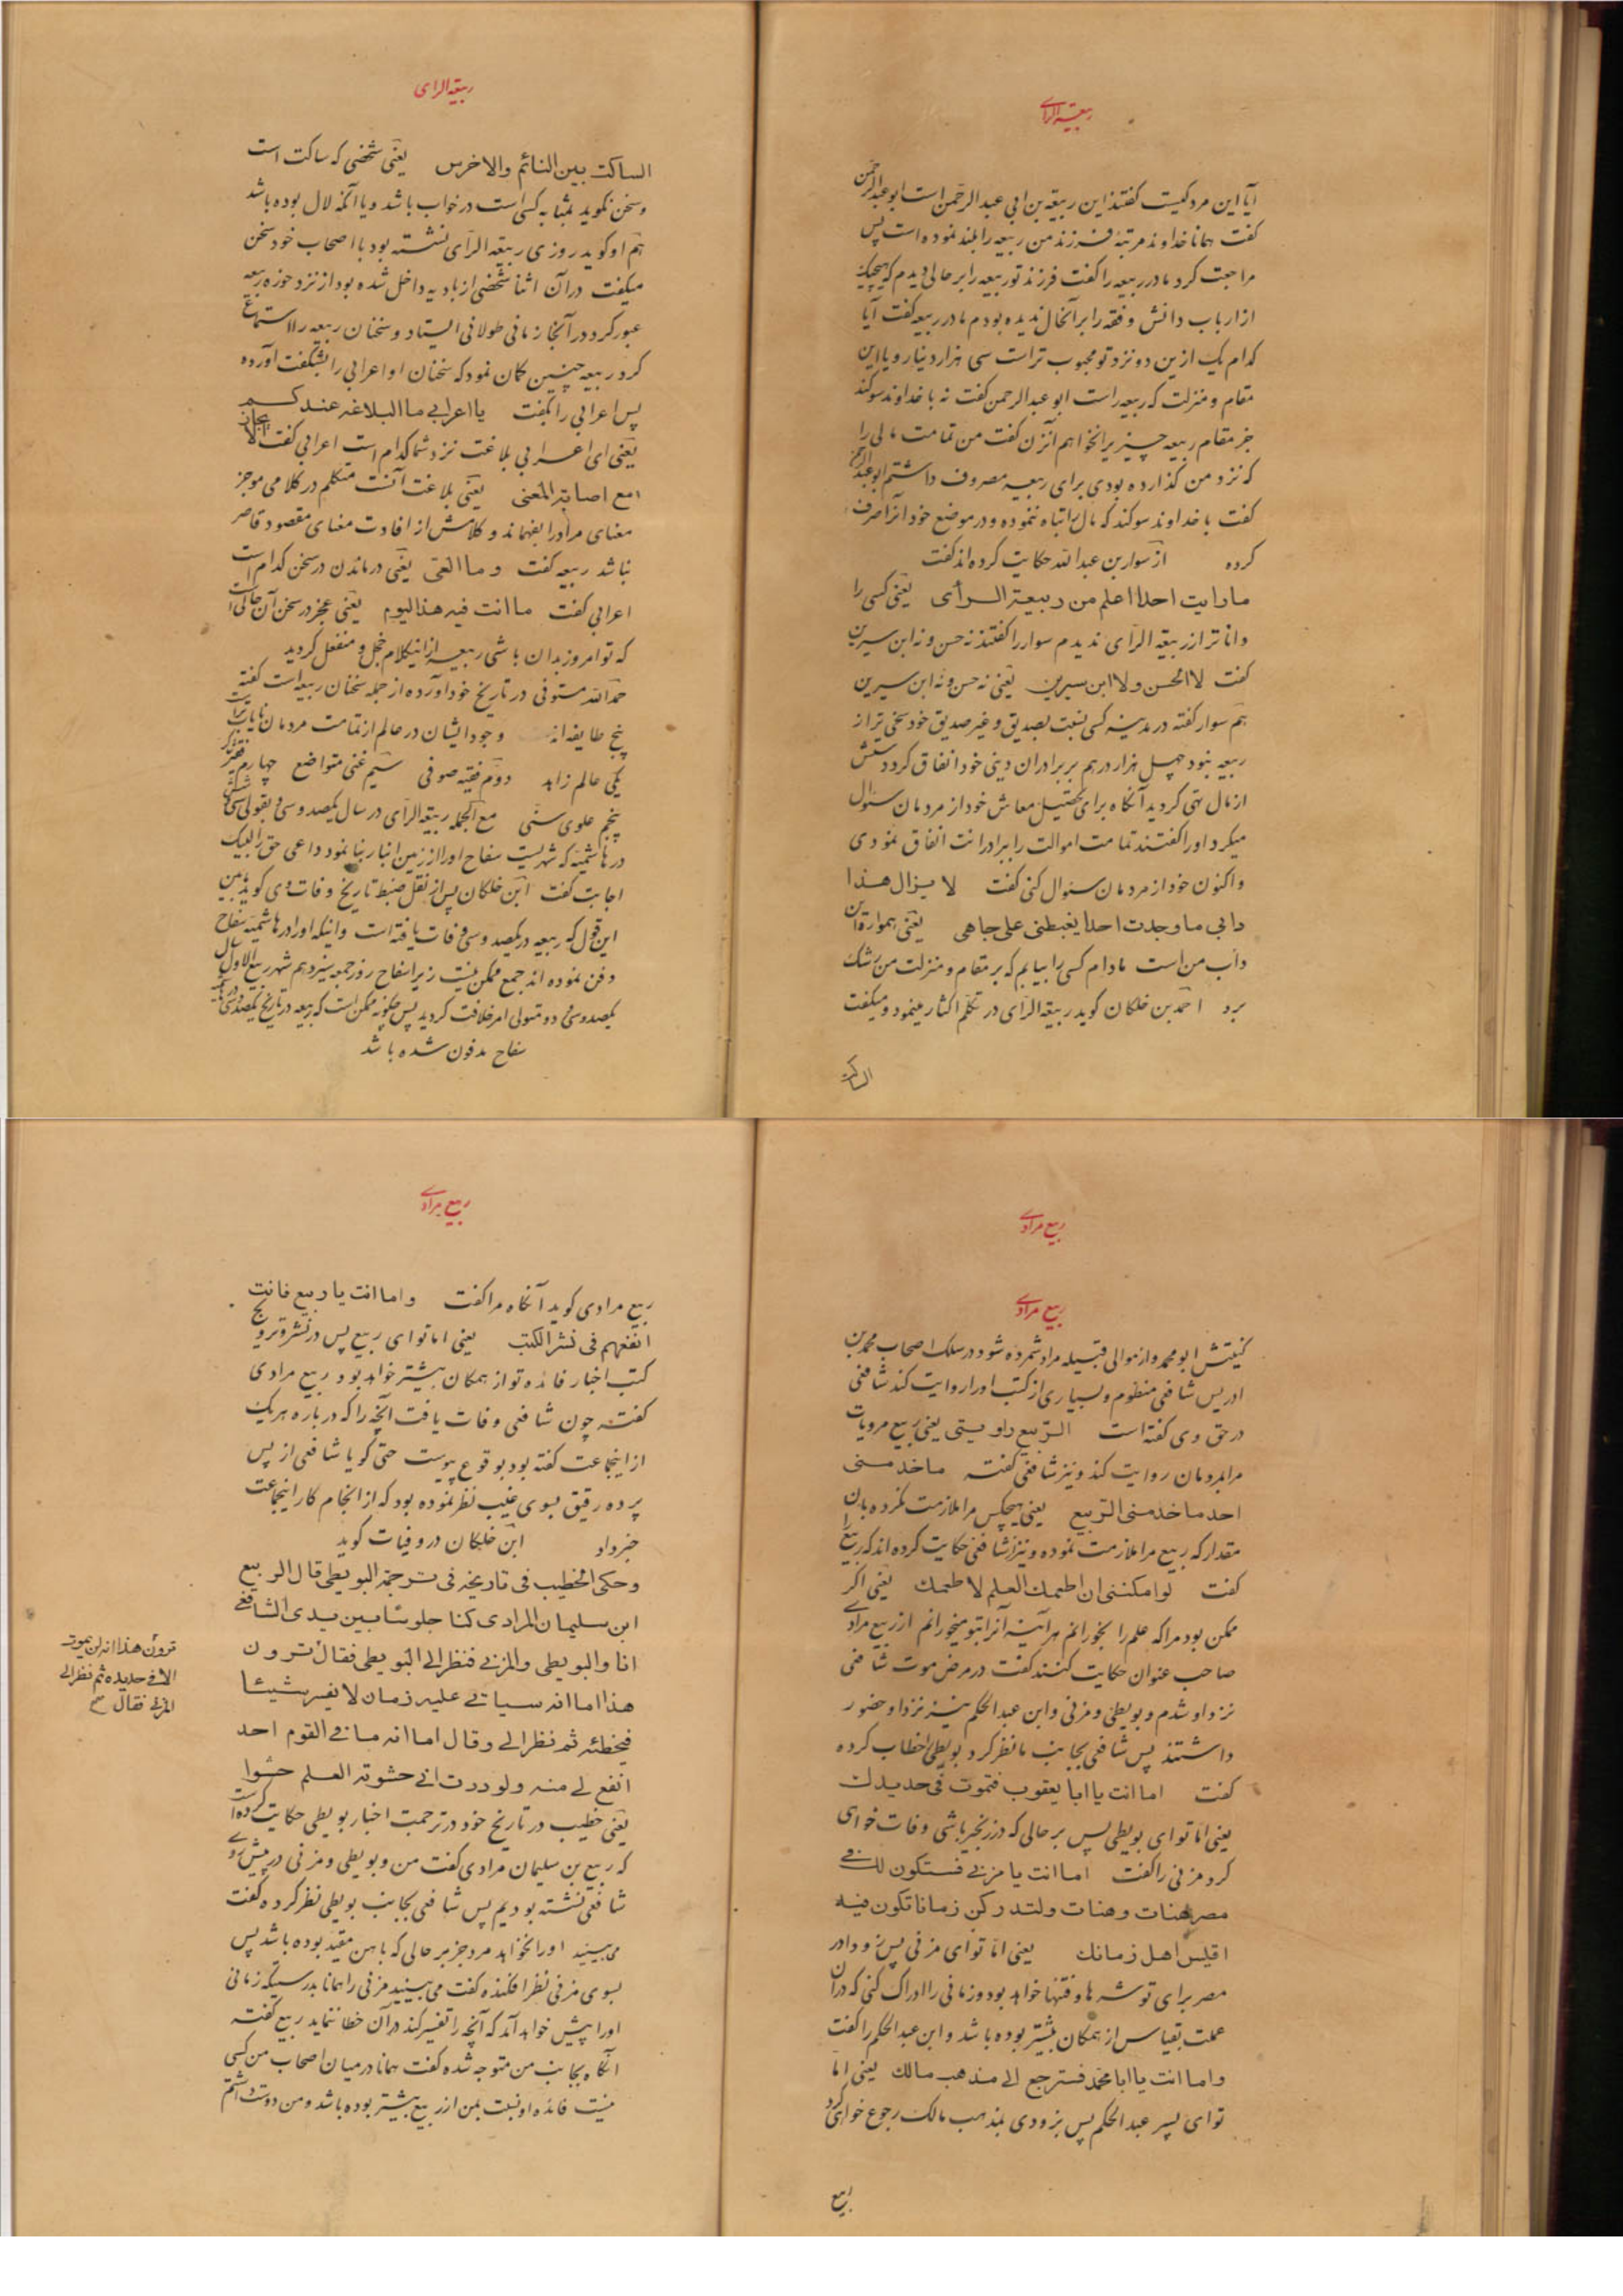 ربیعة الرای
آیا این مرد کیست گفتند این ربیعة بن ابی عبد الرحمن است ابو عبد الرحمن
گفت همانا خداوند مرتبهٔ فرزند من ربیعه را بلند نموده است پس
مراجعت کرد مادر ربیعه را گفت فرزند تو ربیعه را بر حالی دیدم که هیچیک
از ارباب دانش و فقه را بر آنحال ندیده بودم مادر ربیعه گفت آیا
کدام یک ازین دو نزد تو محبوب تر است سی هزار دینار و یا این
مقام و منزلت که ربیعه راست ابو عبد الرحمن گفت نه با خداوند سوکند
جز مقام ربیعه چیزیرا نخواهم آنزن گفت من تمامت مالی را
که نزد من گذارده بودی برای ربیعه مصروف داشتم ابو عبد الرحمن
گفت با خداوند سوکند که مال را تباه ننموده و در موضع خود آنرا صرف
کرده از سوار بن عبد الله حکایت کرده اند گفت
ما رایت احدا اعلم من ربیعة الرأی یعنی کسی را
دانا تر از ربیعة الرای ندیدم سوار را گفتند نه حسن و نه ابن سیرین
گفت لا الحسن و لا ابن سیرین یعنی نه حسن و نه ابن سیرین
هم سوار گفته در مدینه کسی نسبت بصدیق و غیر صدیق خود سخی تر از
ربیعه نبود چهل هزار درهم بر برادران دینی خود انفاق کرد دستش
از مال تهی گردید آنگاه برای تحصیل معاش خود از مردمان سئوال
میکرد او را گفتند تمامت اموالت را ببرادرانت انفاق نمودی
و اکنون خود از مردمان سئوال کنی گفت لا یزال هذا
دابی ما وجدت احدا یغبطنی علی جاهی یعنی همواره این
دأب من است مادام کسی را بیابم که بر مقام و منزلت من رشک
برد احمد بن خلکان گوید ربیعة الرای در تکلم اکثار مینمود و میگفت
الساکت
ربیعة الرای
الساکت بین النائم والاخرس یعنی شخصی که ساکت است
و سخن نگوید بمثابه کسی است در خواب باشد و یا آنکه لال بوده باشد
هم او گوید روزی ربیعة الرای نشسته بود با اصحاب خود سخن
میگفت در آن اثنا شخصی از بادیه داخل شده بود از نزد حوزه ربیعه
عبور کرد در آنجا زمانی طولانی ایستاد و سخنان ربیعه را استماع
کرد ربیعه چنین گمان نمود که سخنان او اعرابی را بشگفت آورده
پس اعرابی را گفت یا اعرابی ما البلاغه عندکم
یعنی ای اعرابی بلاغت نزد شما کدام است اعرابی گفت الایجاز
مع اصابة المعنی یعنی بلاغت آنست متکلم در کلامی موجز
معنای مراد را بفهماند و کلامش از افادت معنای مقصود قاصر
نباشد ربیعه گفت و ما العی یعنی درماندن در سخن کدام است
اعرابی گفت ما انت فیه هذا الیوم یعنی عجز در سخن آن حالی است
که تو امروز بدان باشی ربیعه از اینکلام خجل و منفعل گردید
حمد الله مستوفی در تاریخ خود آورده از جمله سخنان ربیعه است گفته
پنج طایفه اند وجود ایشان در عالم از تمامت مردمان نایاب تر است
یکی عالم زاهد دوم فقیه صوفی سیم غنی متواضع چهارم فقیر شاکر
پنجم علوی سنی مع الجمله ربیعة الرای در سال یکصد و سی و بقولی سی و شش
در هاشمیه که شهریست سفاح او را از زمین انبار بنا نمود داعی حق را لبیک
اجابت گفت ابن خلکان پس از نقل ضبط تاریخ وفات وی گوید بین
این قول که ربیعه در یکصد و سی وفات یافته است و اینکه او را در هاشمیه سفاح
دفن نموده اند جمع ممکن نیست زیرا سفاح روز جمعه سیزدهم شهر ربیع الاول سال
یکصد و سی و دو متولی امر خلافت گردید پس چگونه ممکن است که ربیعه در تاریخ یکصد و سی در هاشمیه
سفاح مدفون شده باشد
ربیع مرادی
ربیع مرادی
کنیتش ابو محمد و از موالی قبیله مراد شمرده شود در سلک اصحاب محمد بن
ادریس شافعی منظوم و بسیاری از کتب او را روایت کند شافعی
در حق وی گفته است الربیع راویتی یعنی ربیع مرویات
مرا بمردمان روایت کند و نیز شافعی گفته ما خدمنی
احد ما خدمنی الربیع یعنی هیچکس مرا ملازمت نکرده بان
مقدار که ربیع مرا ملازمت نموده و نیز از شافعی حکایت کرده اند که ربیع را
گفت لو امکننی ان اطعمك العلم لا طعمك یعنی اگر
ممکن بود مرا که علم را بخورانم هر آینه آنرا بتو میخورانم از ربیع مرادی
صاحب عنوان حکایت کنند گفت در مرض موت شافعی
نزد او شدم و بویطی و مزنی و ابن عبد الحکم نیز نزد او حضور
داشتند پس شافعی بجانب ما نظر کرد بویطی را خطاب کرده
گفت اما انت یا ابا یعقوب فتموت فی حدیدك
یعنی اما تو ای بویطی پس بر حالی که در زنجیر باشی وفات خواهی
کرد مزنی را گفت اما انت یا مزنی فستکون لك فی
مصر هنات و هنات و لتدرکن زمانا تکون فیه
اقیس اهل زمانك یعنی اما تو ای مزنی پس زود در
مصر برای تو شرها و فتنها خواهد بود و زمانی را ادراک کنی که در آن
عملت بقیاس از همکان بیشتر بوده باشد و ابن عبد الحکم را گفت
و اما انت یا ابا محمد فسترجع الی مذهب مالك یعنی اما
تو ای پسر عبد الحکم پس بزودی بمذهب مالک رجوع خواهی کرد
ربیع
ربیع مرادی
ربیع مرادی گوید آنگاه مرا گفت و اما انت یا ربیع فانت
انفعهم فی نشر الکتب یعنی اما تو ای ربیع پس در نشر و ترویج
کتب اخبار فائده تو از همکان بیشتر خواهد بود ربیع مرادی
گفته چون شافعی وفات یافت آنچه را که در باره هر یک
از اینجماعت گفته بود بوقوع پیوست حتی گویا شافعی از پس
پرده رقیق بسوی غیب نظر نموده بود که از انجام کار اینجماعت
خبر داد ابن خلکان در وفیات گوید
و حکی الخطیب فی تاریخه فی ترجمة البویطی قال الربیع
ابن سلیمان المرادی کنا جلوسا بین یدی الشافعی
انا والبویطی والمزنی فنظر الی البویطی فقال ترون
هذا اما انه سیاتی علیه زمان لا یفسر شیئا
فیخطئه ثم نظر الی و قال اما انه ما فی القوم احد
انفع لی منه و لوددت انی حشوته العلم حشوا
یعنی خطیب در تاریخ خود در ترجمت اخبار بویطی حکایت کرده است
که ربیع بن سلیمان مرادی گفت من و بویطی و مزنی در پیش روی
شافعی نشسته بودیم پس شافعی بجانب بویطی نظر کرده گفت
می بینید او را نخواهد مرد جز بر حالی که باهن مقید بوده باشد پس
بسوی مزنی نظر افکنده گفت می بینید مزنی را همانا بدرستیکه زمانی
او را پیش خواهد آمد که آنچه را تفسیر کند در آن خطا ننماید ربیع گفته
آنگاه بجانب من متوجه شده گفت همانا در میان اصحاب من کسی
نیست فائده او نسبت بمن از ربیع بیشتر بوده باشد و من دوست داشتم
ترون هذا انه لن یموت
الا فی حدیده ثم نظر الی
المزنی فقال